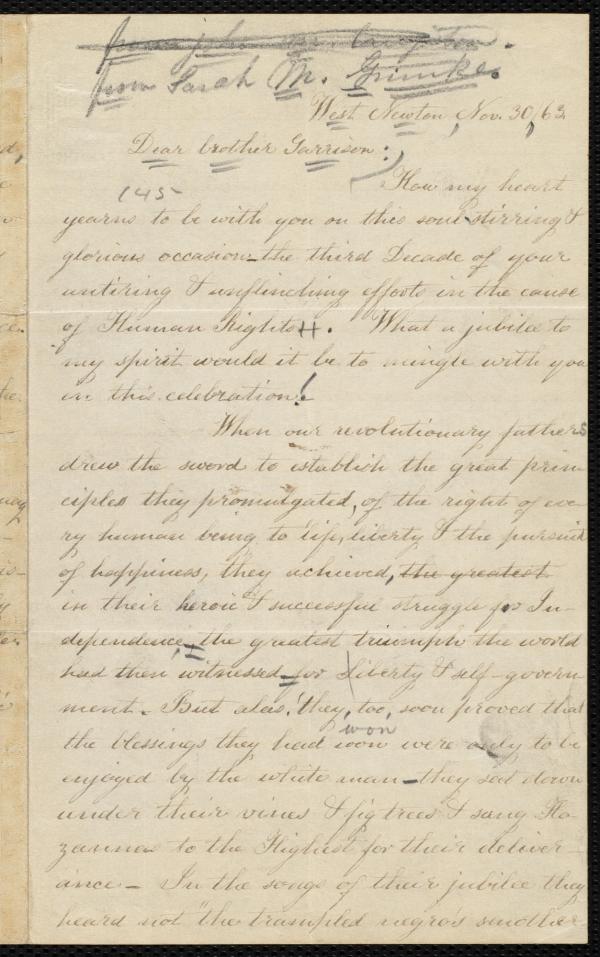 from Sarah M. Grimke.
West Newton, Nov. 30/63
Dear brother Garrison:
145
How my heart
yearns to be with you on this soul-stirring &
glorious occasion—the third Decade of your
untiring & unflinching efforts in the cause
of Human Rights. What a jubilee to
my spirit would it be to mingle with you
in this celebration!
When our revolutionary fathers
drew the sword to establish the great prin-
ciples they promulgated, of the right of eve-
ry human being to life, liberty & the pursuit
of happiness, they achieved, the greatest
in their heroic & successful struggle for In-
dependence,—the greatest triumph the world
had then witnessed for liberty & self-govern-
ment. But alas! they, too, soon proved that
won
the blessings they had won were only to be
enjoyed by the white man—they sat down
under their vines & fig trees & sang Ho-
zannas to the Highest for their deliver-
ance— In the songs of their jubilee they
heard not "the trampled negro's smother-